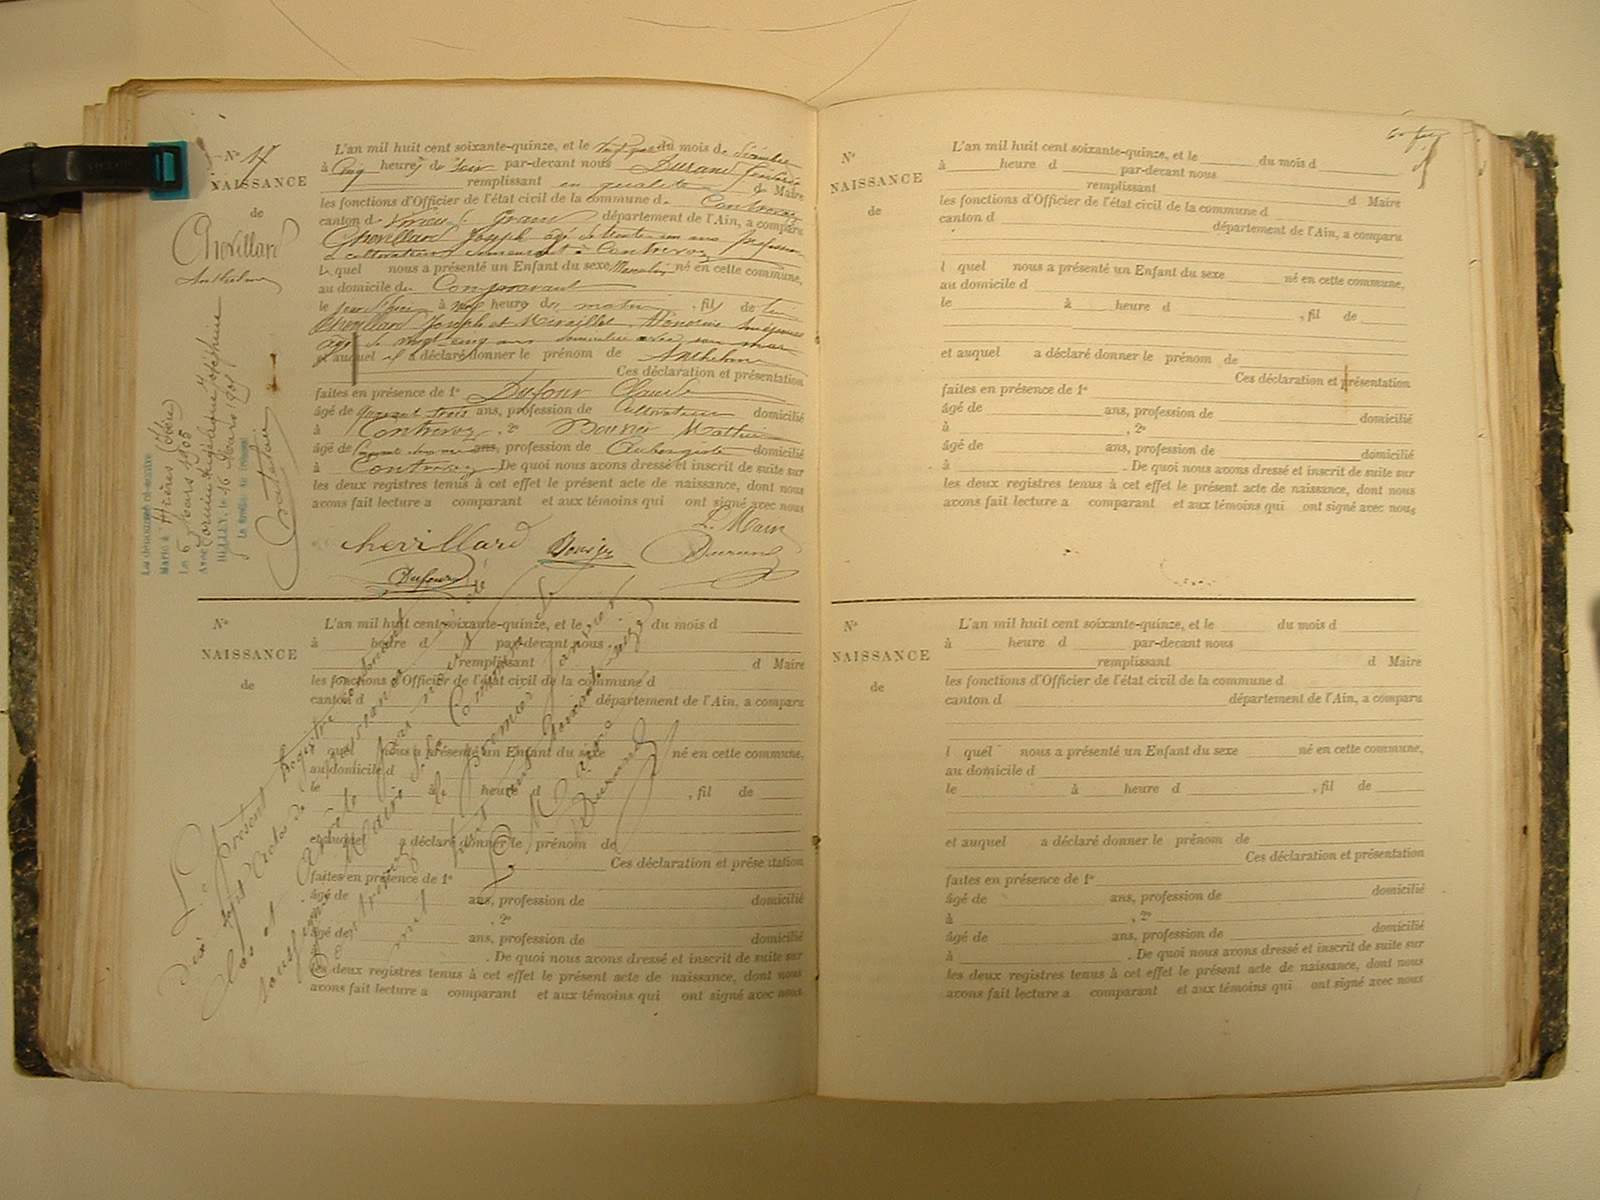 N° 17
NAISSANCE
de
Chevillard
Anthelme
L'an mil huit cent soixante-quinze, et le du mois de Décembre
à Cinq heures de Soir par-devant nous Durand
remplissant en qualité de Maire
les fonctions d'Officier de l'état civil de la commune de Contrevoz
canton de Virieu le Grand département de l'Ain, a comparu
Chevillard Joseph âgé de trente un ans profession
de cultivateur demeurant à Contrevoz
lequel nous a présenté un Enfant du sexe Masculin né en cette commune,
au domicile du Comparant
le jour d'hui à heure de matin, fils de
Chevillard Joseph et
âgée de vingt cinq ans avec son mari
et auquel il a déclaré donner le prénom de Anthelme
Ces déclaration et présentation
faites en présence de 1° Dufour Claude
âgé de quarant trois ans, profession de Cultivateur domicilié
à Contrevoz, 2° Bouvier Mathieu
âgé de ans, profession de Aubergiste domicilié
à Contrevoz. De quoi nous avons dressé et inscrit de suite sur
les deux registres tenus à cet effet le présent acte de naissance, dont nous
avons fait lecture a comparant et aux témoins qui ont signé avec nous
Le Maire
chevillard Bouvier Durand
Dufour
Le dénommé ci-contre
Marié à Hières (Isère)
Le 6 Mars 1905
Avec Joséphine
BELLEY, le 16 Mars 1905
Le Greffier du Tribunal
N°
NAISSANCE
de
L'an mil huit cent soixante-quinze, et le du mois d
à heure d par-devant nous
remplissant d Maire
les fonctions d'Officier de l'état civil de la commune d
canton d département de l'Ain, a comparu
l quel nous a présenté un Enfant du sexe né en cette commune,
au domicile d
le à heure d , fil de
et auquel a déclaré donner le prénom de
Ces déclaration et présentation
faites en présence de 1°
âgé de ans, profession de domicilié
à , 2°
âgé de ans, profession de domicilié
à . De quoi nous avons dressé et inscrit de suite sur
les deux registres tenus à cet effet le présent acte de naissance, dont nous
avons fait lecture a comparant et aux témoins qui ont signé avec nous
Le présent Registre
des Actes de naissance
Clos et arrêté par nous
soussigné Maire de la Commune de
Contrevoz le premier Janvier
mil huit cent soixante-seize
Le Maire
Durand
N°
NAISSANCE
de
L'an mil huit cent soixante-quinze, et le du mois d
à heure d par-devant nous
remplissant d Maire
les fonctions d'Officier de l'état civil de la commune d
canton d département de l'Ain, a comparu
l quel nous a présenté un Enfant du sexe né en cette commune,
au domicile d
le à heure d , fil de
et auquel a déclaré donner le prénom de
Ces déclaration et présentation
faites en présence de 1°
âgé de ans, profession de domicilié
à , 2°
âgé de ans, profession de domicilié
à . De quoi nous avons dressé et inscrit de suite sur
les deux registres tenus à cet effet le présent acte de naissance, dont nous
avons fait lecture a comparant et aux témoins qui ont signé avec nous
N°
NAISSANCE
de
L'an mil huit cent soixante-quinze, et le du mois d
à heure d par-devant nous
remplissant d Maire
les fonctions d'Officier de l'état civil de la commune d
canton d département de l'Ain, a comparu
l quel nous a présenté un Enfant du sexe né en cette commune,
au domicile d
le à heure d , fil de
et auquel a déclaré donner le prénom de
Ces déclaration et présentation
faites en présence de 1°
âgé de ans, profession de domicilié
à , 2°
âgé de ans, profession de domicilié
à . De quoi nous avons dressé et inscrit de suite sur
les deux registres tenus à cet effet le présent acte de naissance, dont nous
avons fait lecture a comparant et aux témoins qui ont signé avec nous